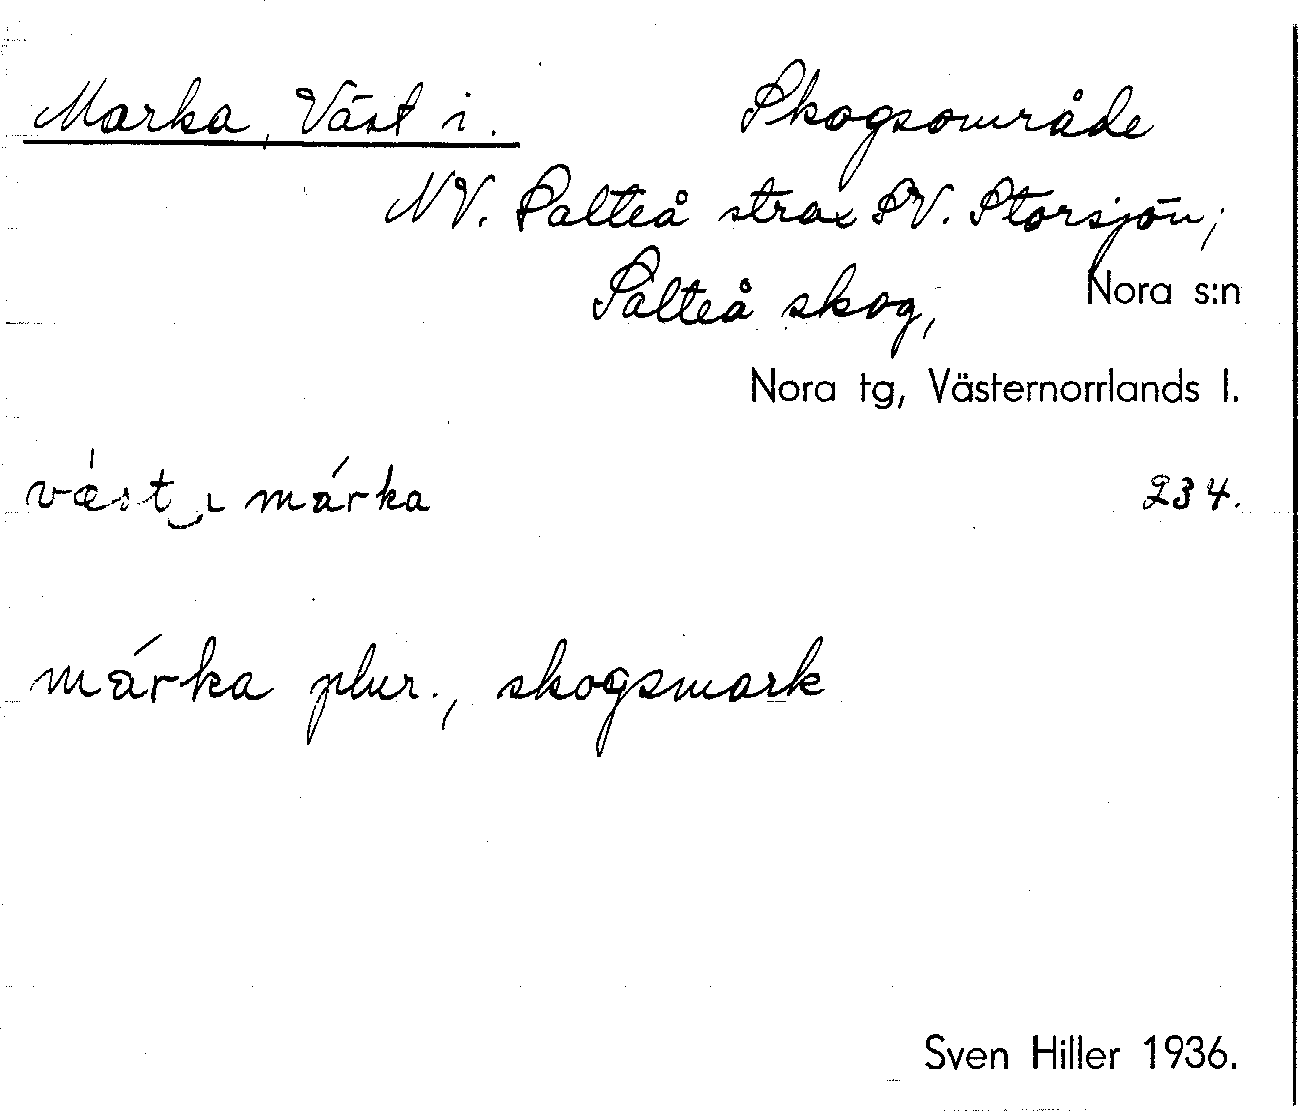 Marka, Väst i. Skogsområde
NV. Salteå strax SV. Storsjön;
Salteå skog, Nora s:n
Nora tg, Västernorrlands l.
væ̍st‿ı márka 234.
márka plur., skogsmark
Sven Hiller 1936.